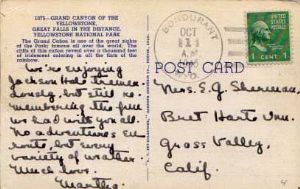 1071—GRAND CANYON OF THE
YELLOWSTONE,
GREAT FALLS IN THE DISTANCE,
YELLOWSTONE NATIONAL PARK
The Grand Cañon is one of the great sights
of the Park; famous all over the world. The
cliffs of this cañon reveal over a thousand feet
of iridescent coloring in all the fury of the
rainbow.
We're enjoying
Jackson Hole
but still re-
membering the fine
we had with you all.
No adventures en
route, but every
variety of weather.
Much love,
Martha
BONDURANT
OCT
11
AM
WYO.
1 CENT 1
POST CARD
Mrs. E. G. Sherman,
Bret Harte Inn,
Grass Valley,
Calif.